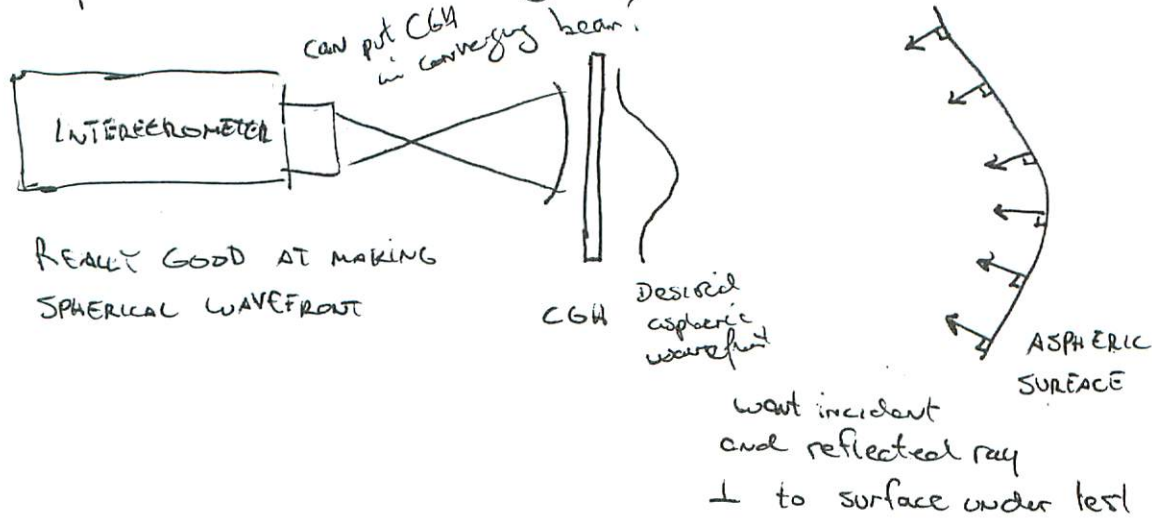 can put CGH
in converging beam!
INTERFEROMETER
REALLY GOOD AT MAKING
SPHERICAL WAVEFRONT
CGH
Desired
aspheric
wavefront
ASPHERIC
SURFACE
want incident
and reflected ray
⊥ to surface under test